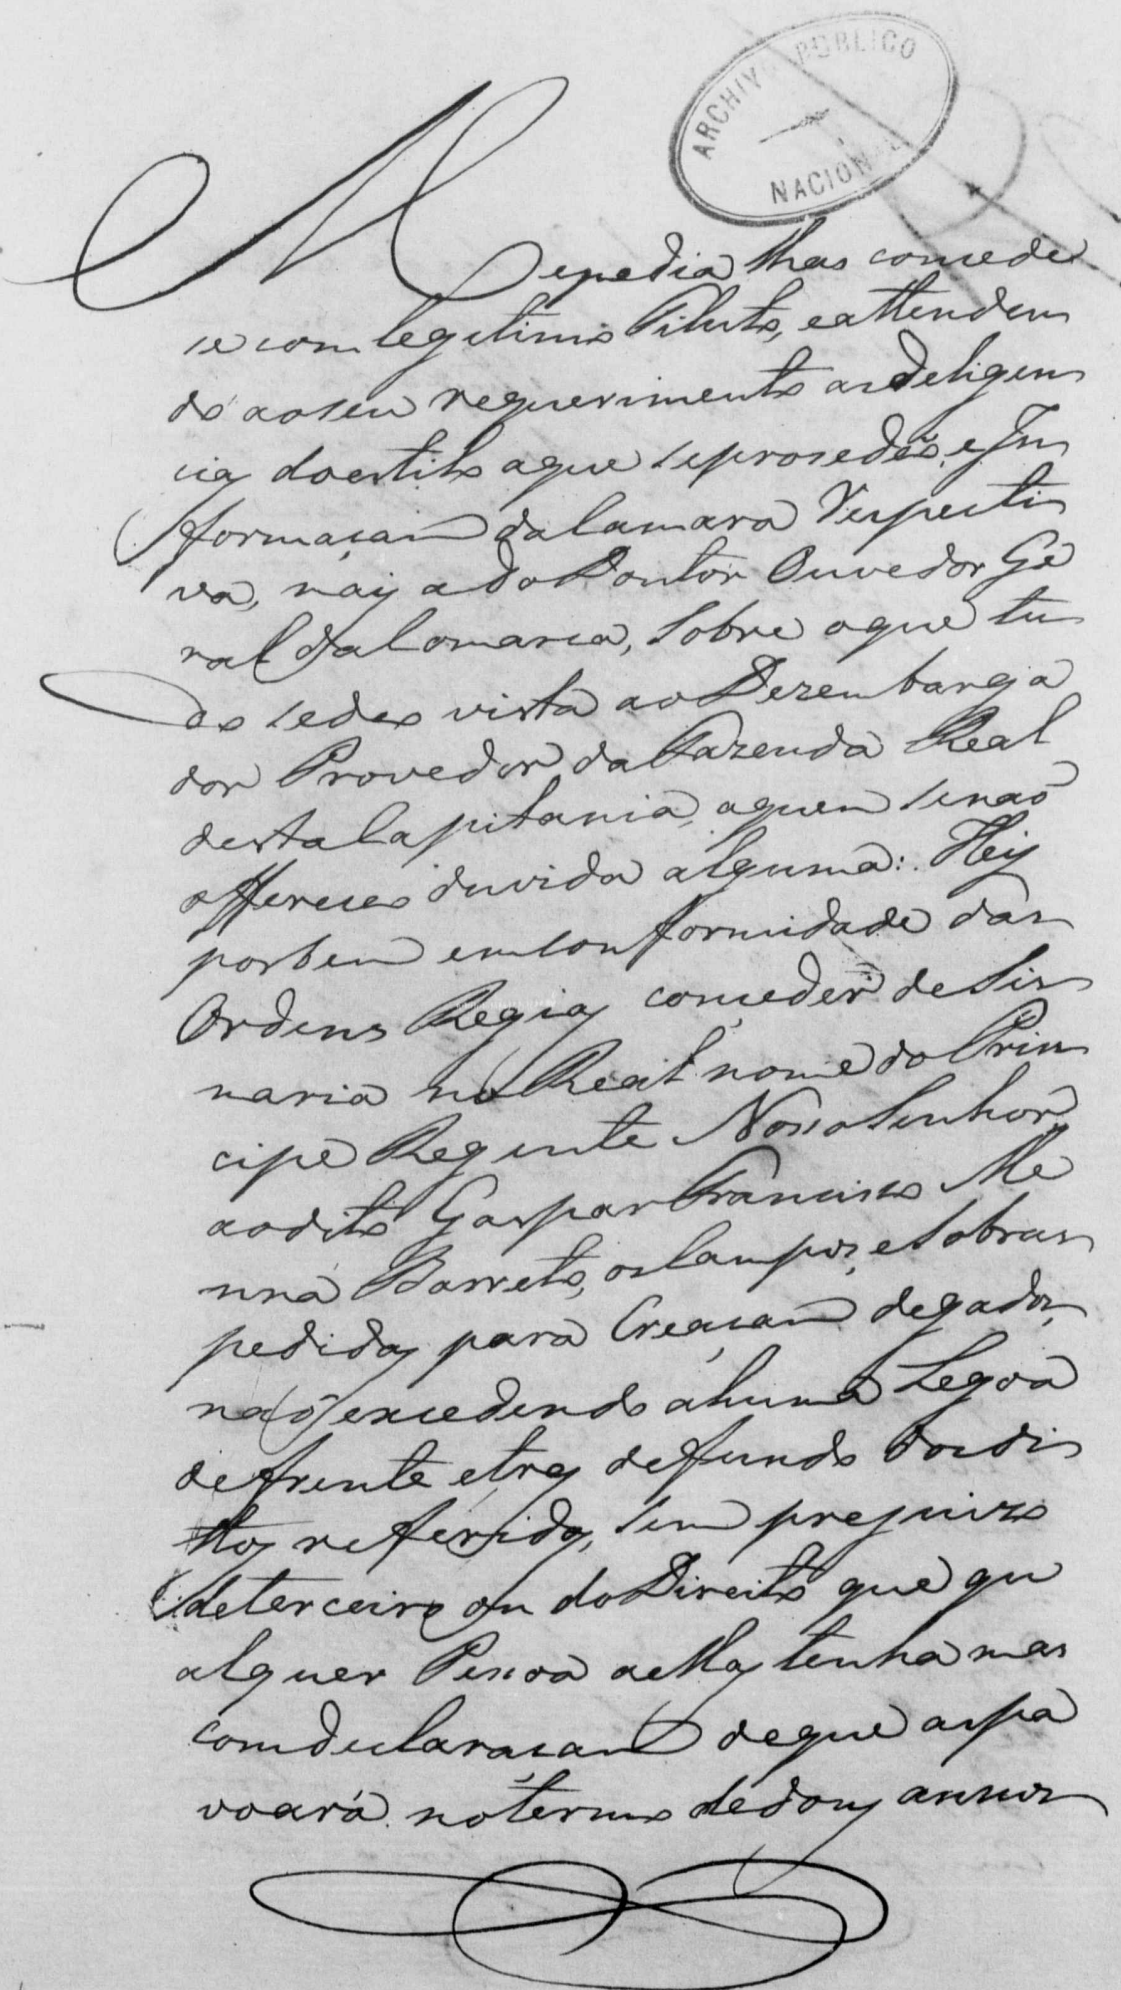 ARCHIVO PUBLICO
NACIONAL
Mepedia lhas concede
se com legitimo Titulo, eattenden
do aoseu requerimento asdeligen
cias doestilo aque seprosedeo, e In
formaçam daCamara Respecti
va, mais adoDoutor Ouvedor Ge
ral daComarca, sobre oque tu
do sedeo vista aoDezembarga
dor Provedor daFazenda Real
destaCapitania, aquem senaõ
offereceo duvida alguma: Hey
porbem emconformidade das
Ordens Regias conceder deSis
maria no Real nome doPrin
cipe Regente NossoSenhor,
aodito Gaspar Francisco Me
nna Barreto, osCampos, eSobras
pedidas para Creaçam degados,
naõ excedendo ahuma Legoa
defrente etres defundo dosdi
ttos referidos, sem prejuizo
deterceiro ou doDireito que qu
alquer Pessoa aellas tenha mas
comdeclaraçam deque aspo
voará notermo dedous annos